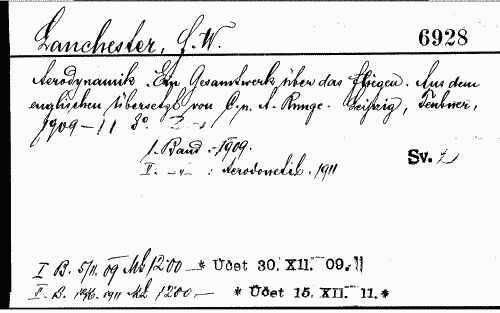 Lanchester, F. W.
6928
Aerodynamik. Ein Gesamtwerk über das Fliegen. Aus dem
englischen übersetzt von C. u. A. Runge. Leipzig, Teubner,
1909-11 8°.
I. Band. - 1909.
II. -"- : Aerodonetik. 1911
Sv. 2
I B. 5/11. 09 Mk 12·00 - * Účet 30. XII. 09. ||
II. B. 1911 Mk 12·00 - * Účet 15. XII. 11. *